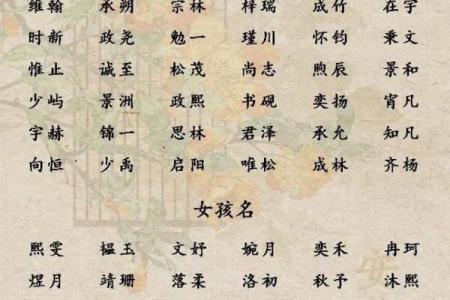 维翰 承朔 宗林 梓瑞 成竹 在宇
时新 政尧 勉一 瑾川 怀钧 秉文
惟止 诚至 松茂 尚志 煦辰 景和
少屿 景洲 政熙 书砚 奕扬 宵凡
宇赫 锦一 思林 君泽 承允 知凡
向恒 少禹 启阳 唯松 成林 齐扬
女孩名
熙雯 韫玉 文妤 婉月 奕禾 冉珂
煜月 靖珊 落柔 洛初 秋予 沐熙